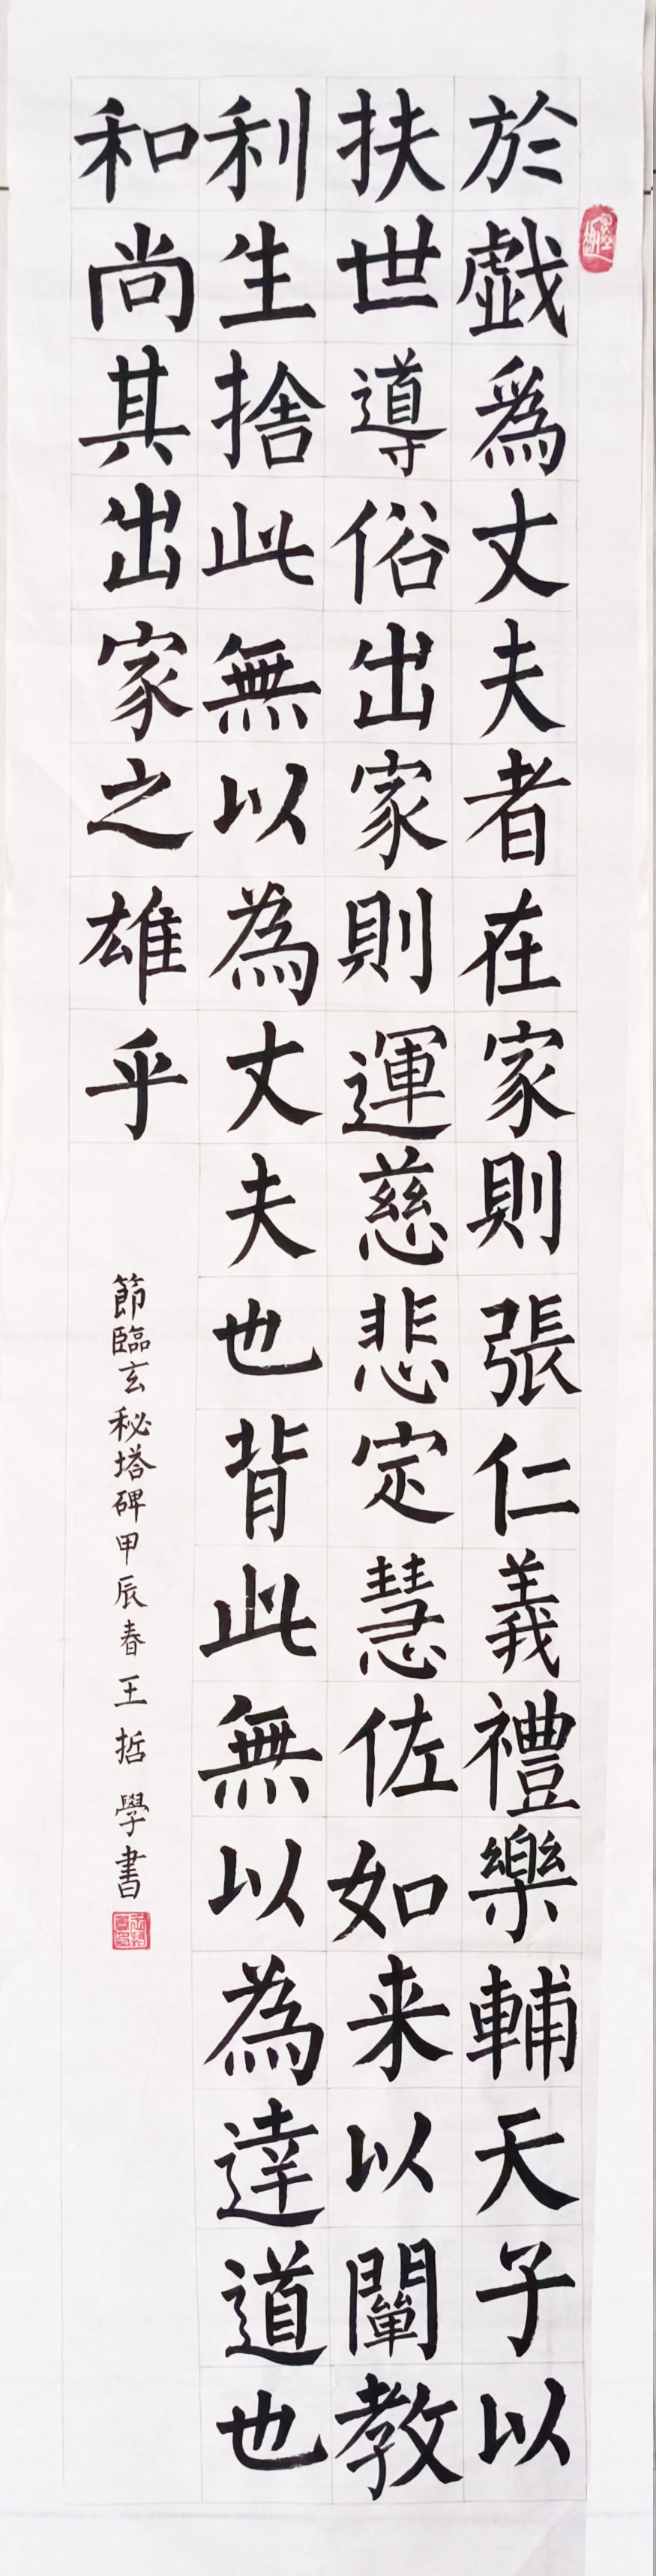 於戯爲丈夫者在家則張仁義禮樂輔天子以
扶世導俗出家則運慈悲定慧佐如来以闡教
利生捨此無以為丈夫也背此無以為達道也
和尚其出家之雄乎
節臨玄秘塔碑甲辰春王哲學書